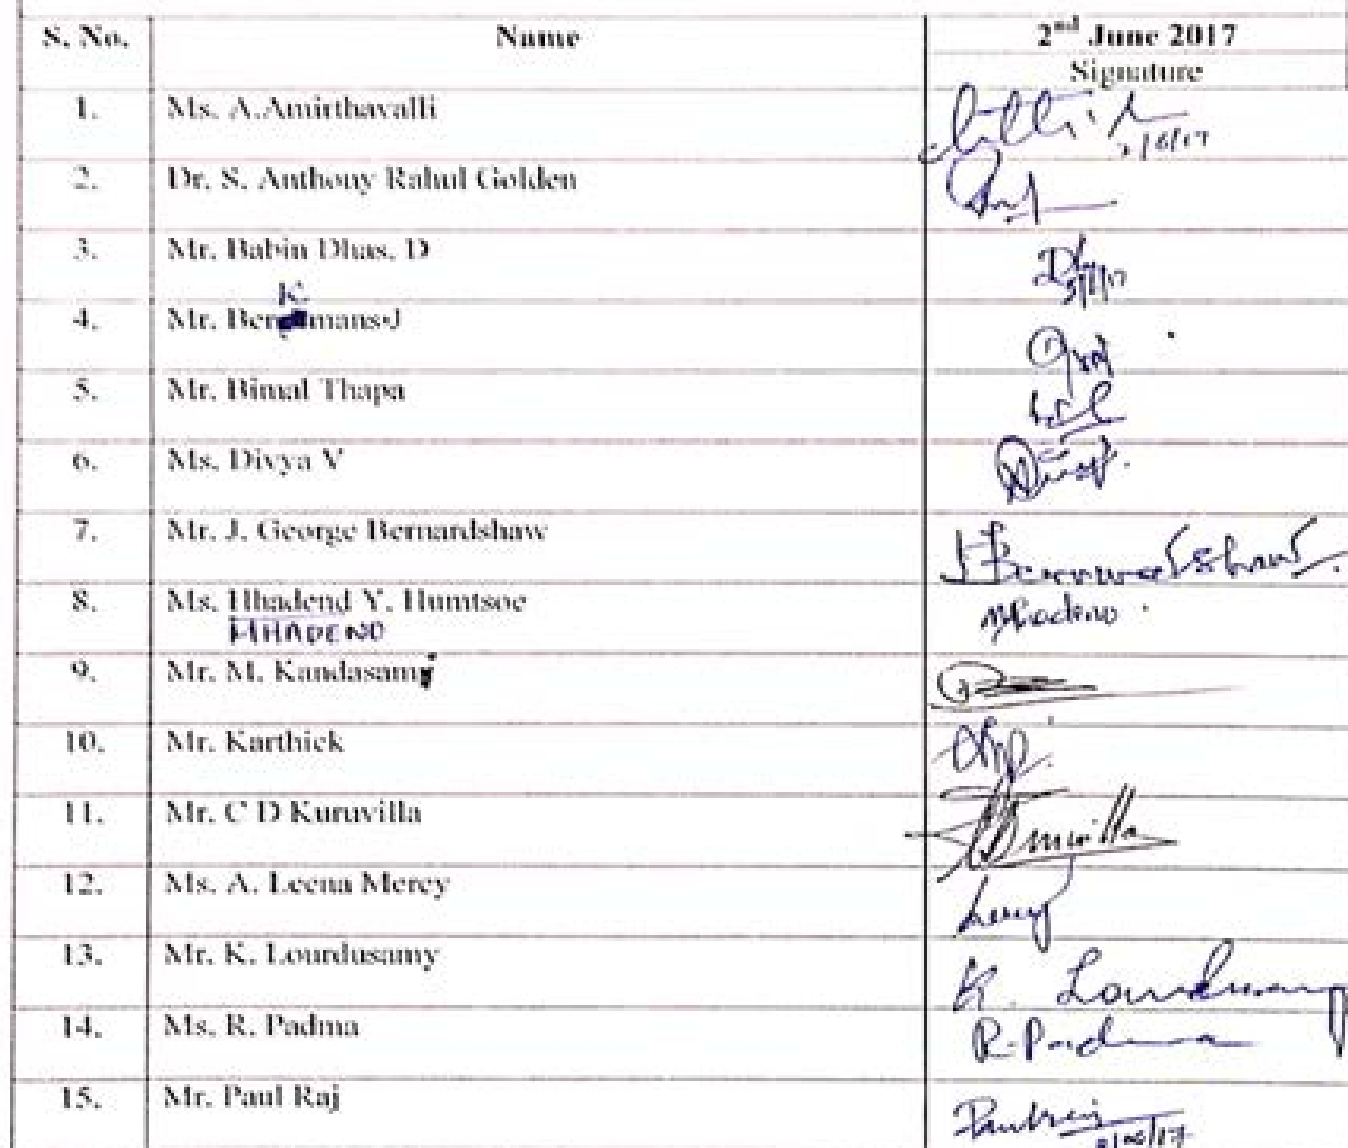 S. No. Name 2nd June 2017
Signature
1. Ms. A.Amirthavalli
2/6/17
2. Dr. S. Anthony Rahul Golden
3. Mr. Babin Dhas. D
K
4. Mr. Ber mans J
5. Mr. Bimal Thapa
6. Ms. Divya V
7. Mr. J. George Bernardshaw
8. Ms. Hhadend Y. Humtsoe Mhadeno
MHADENO
9. Mr. M. Kandasamy
10. Mr. Karthick
11. Mr. C D Kuruvilla
12. Ms. A. Leena Mercy
13. Mr. K. Lourdusamy K. Lourdusamy
14. Ms. R. Padma R. Padma
15. Mr. Paul Raj Paulraj
2/06/17